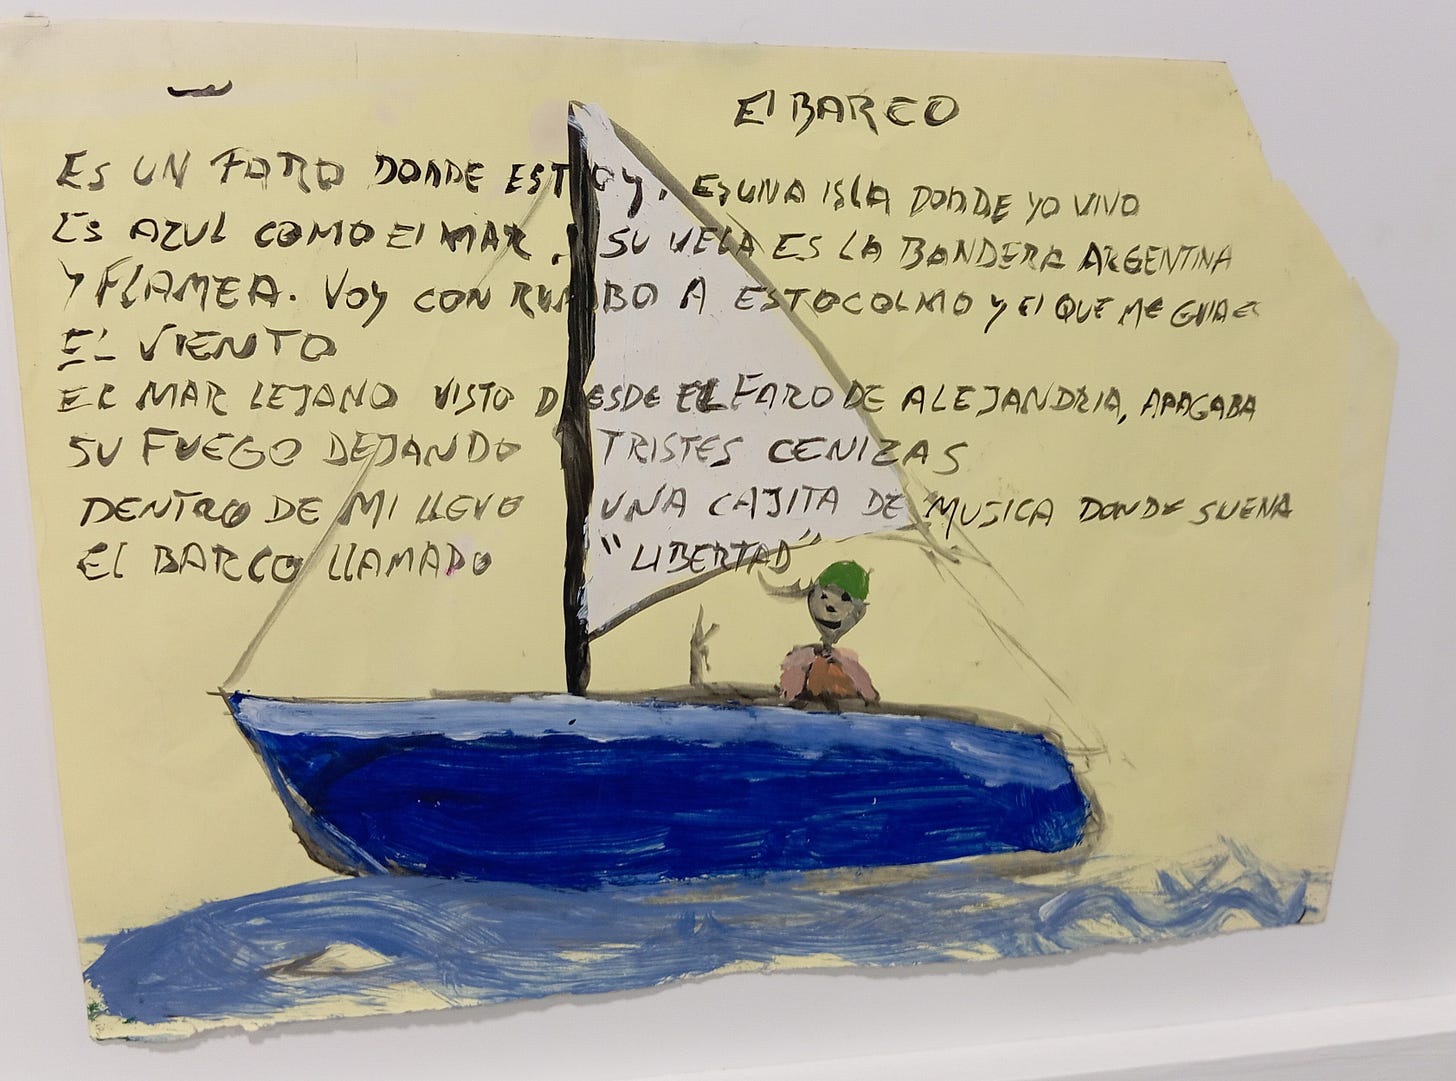 El BARCO
ES UN FARO DONDE ESTOY, ES UNA ISLA DONDE YO VIVO
ES AZUL COMO El MAR, SU VELA ES LA BANDERA ARGENTINA
Y FLAMEA. VOY CON RUMBO A ESTOCOLMO Y El QUE ME GUIA ES
EL VIENTO
EL MAR LEJANO VISTO DESDE EL FARO DE ALEJANDRIA, APAGABA
SU FUEGO DEJANDO TRISTES CENIZAS
DENTRO DE MI LLEVO UNA CAJITA DE MUSICA DONDE SUENA
El BARCO LLAMADO "LIBERTAD"